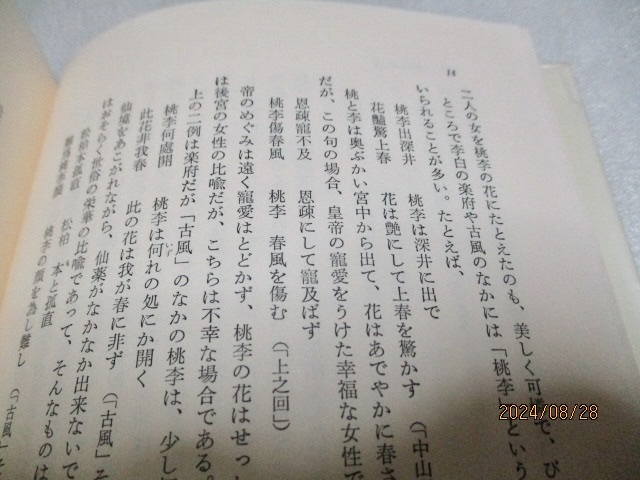 14
二人の女を桃李の花にたとえたのも、美しく可憐で、び
ところで李白の楽府や古風のなかには「桃李」という
いられることが多い。たとえば、
桃李出深井　桃李は深井に出で
花艶驚上春　花は艶にして上春を驚かす　（「中山
桃と李は奥ぶかい宮中から出て、花はあでやかに春さ
だが、この句の場合、皇帝の寵愛をうけた幸福な女性で
恩疎寵不及　恩疎にして寵及ばず
桃李傷春風　桃李　春風を傷む　（「上之回」）
帝のめぐみは遠く寵愛はとどかず、桃李の花はせっ
は後宮の女性の比喩だが、こちらは不幸な場合である。
上の二例は楽府だが「古風」のなかの桃李は、少し
桃李何處開　桃李は何れの処にか開く
此花非我春　此の花は我が春に非ず　（「古風」そ
仙境をあこがれながら、仙薬がなかなか出来ないで
はおそらく世俗の栄華の比喩であって、そんなものは
松柏本孤直　松柏　本と孤直
難為桃李顔　桃李の顔を為し難し　（「古風」そ
2024/08/28